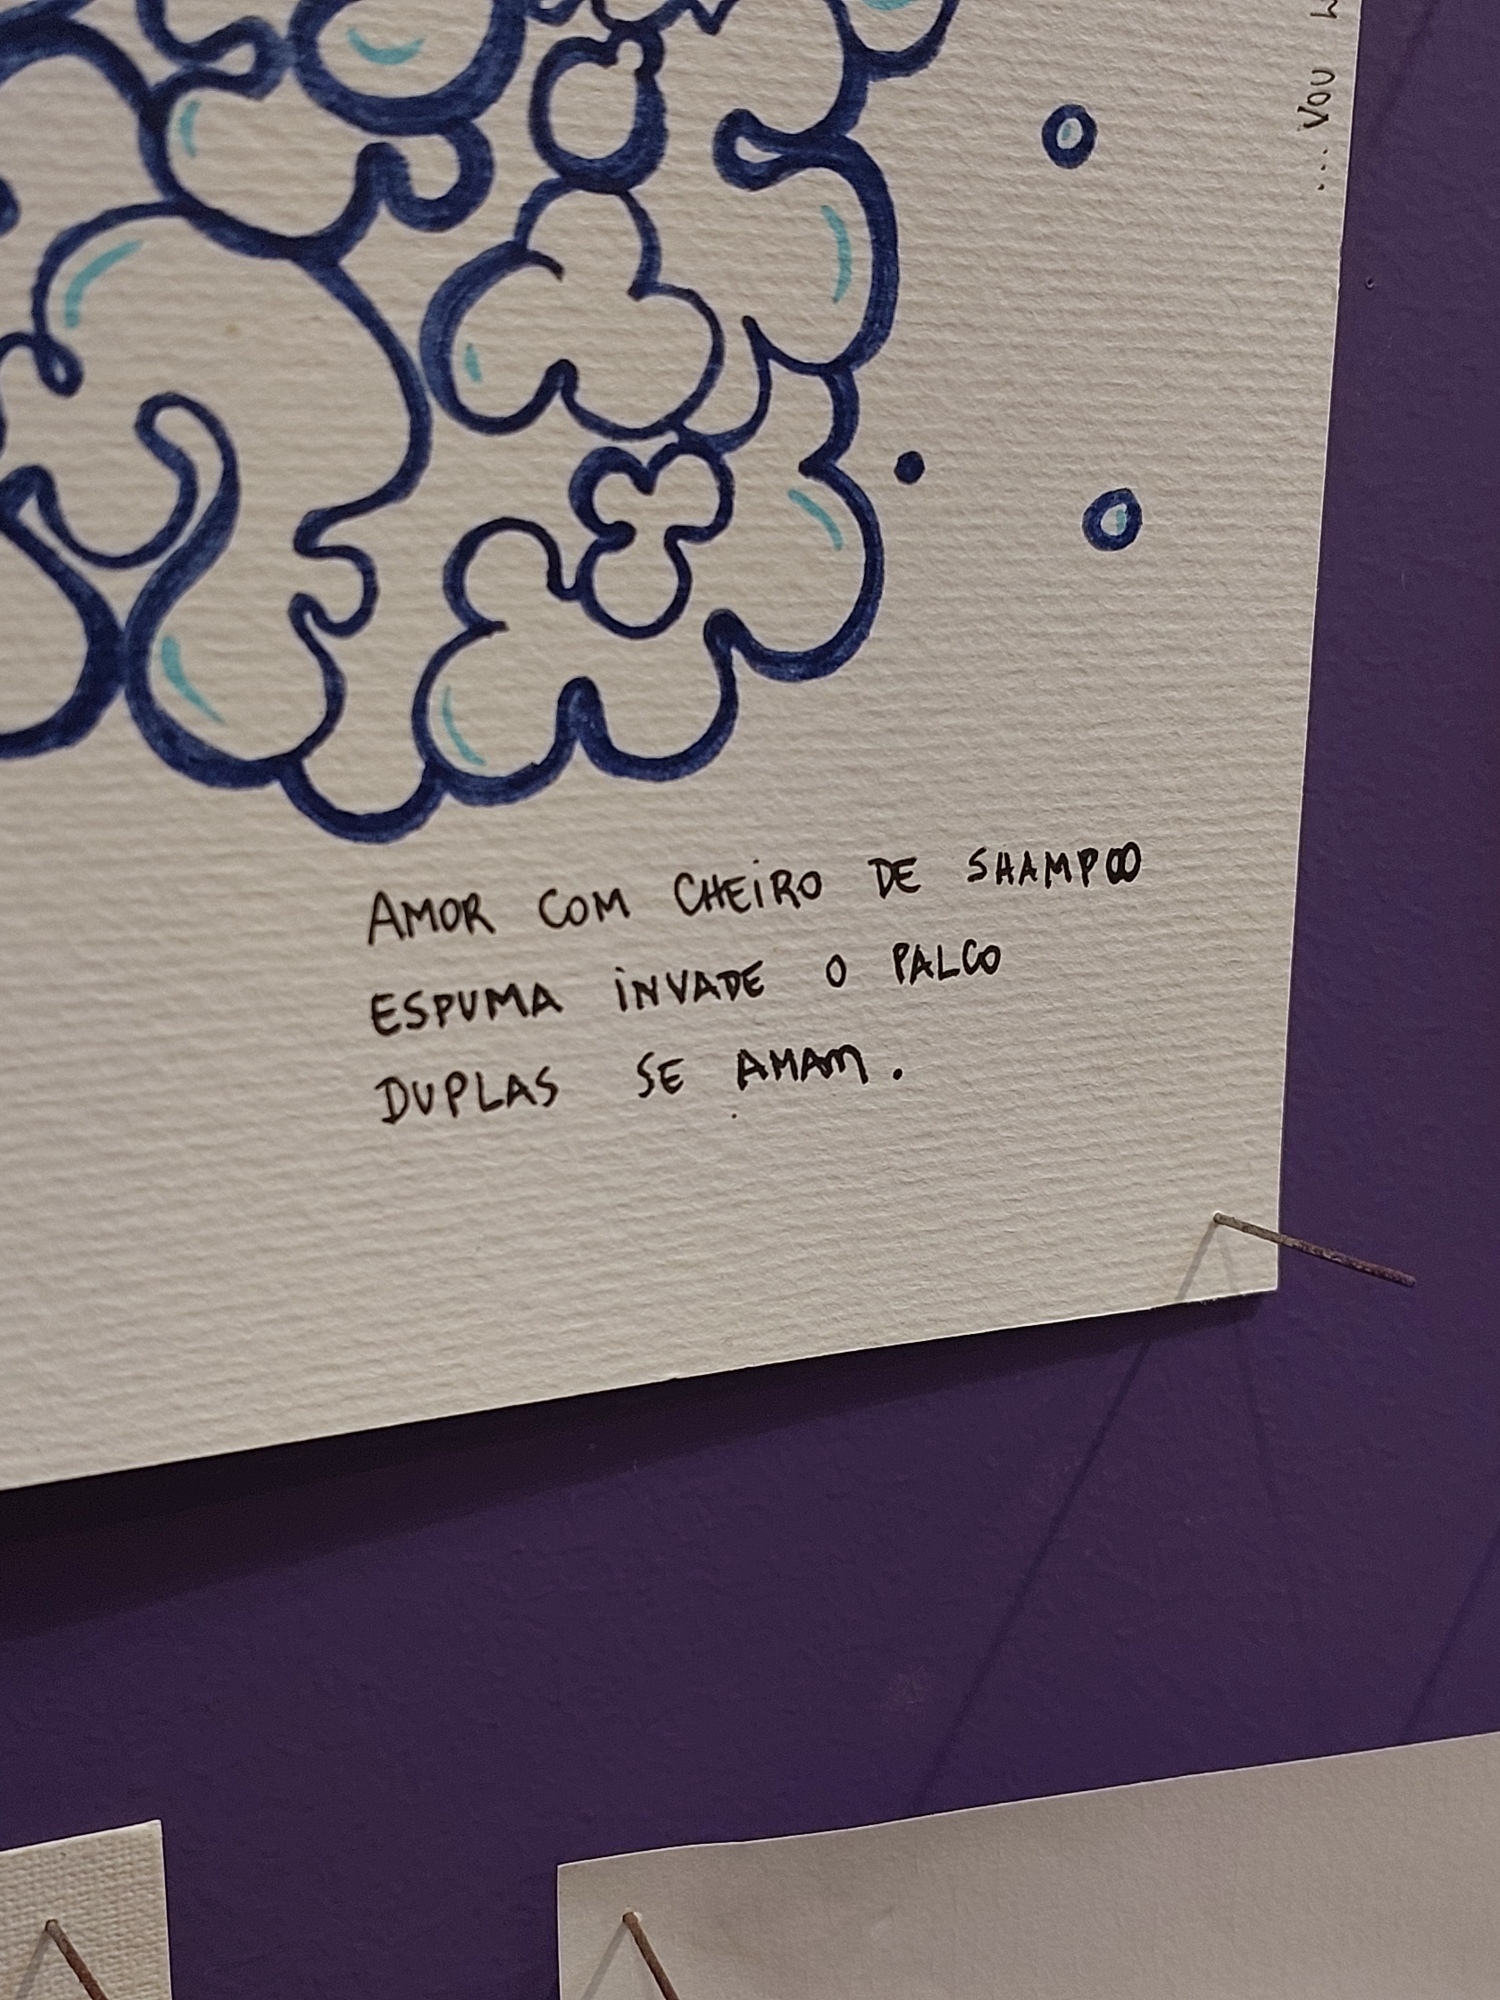 AMOR COM CHEIRO DE SHAMPOO
ESPUMA INVADE O PALCO
DUPLAS SE AMAM.
... VOU